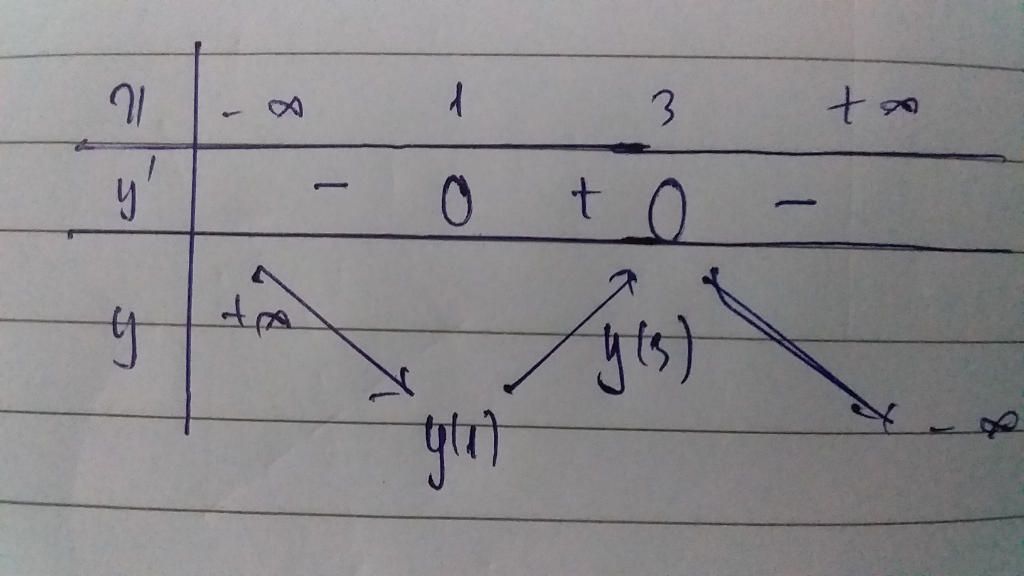 x - ∞ 1 3 + ∞
y' - 0 + 0 -
y +∞ y(3)
y(1) - ∞